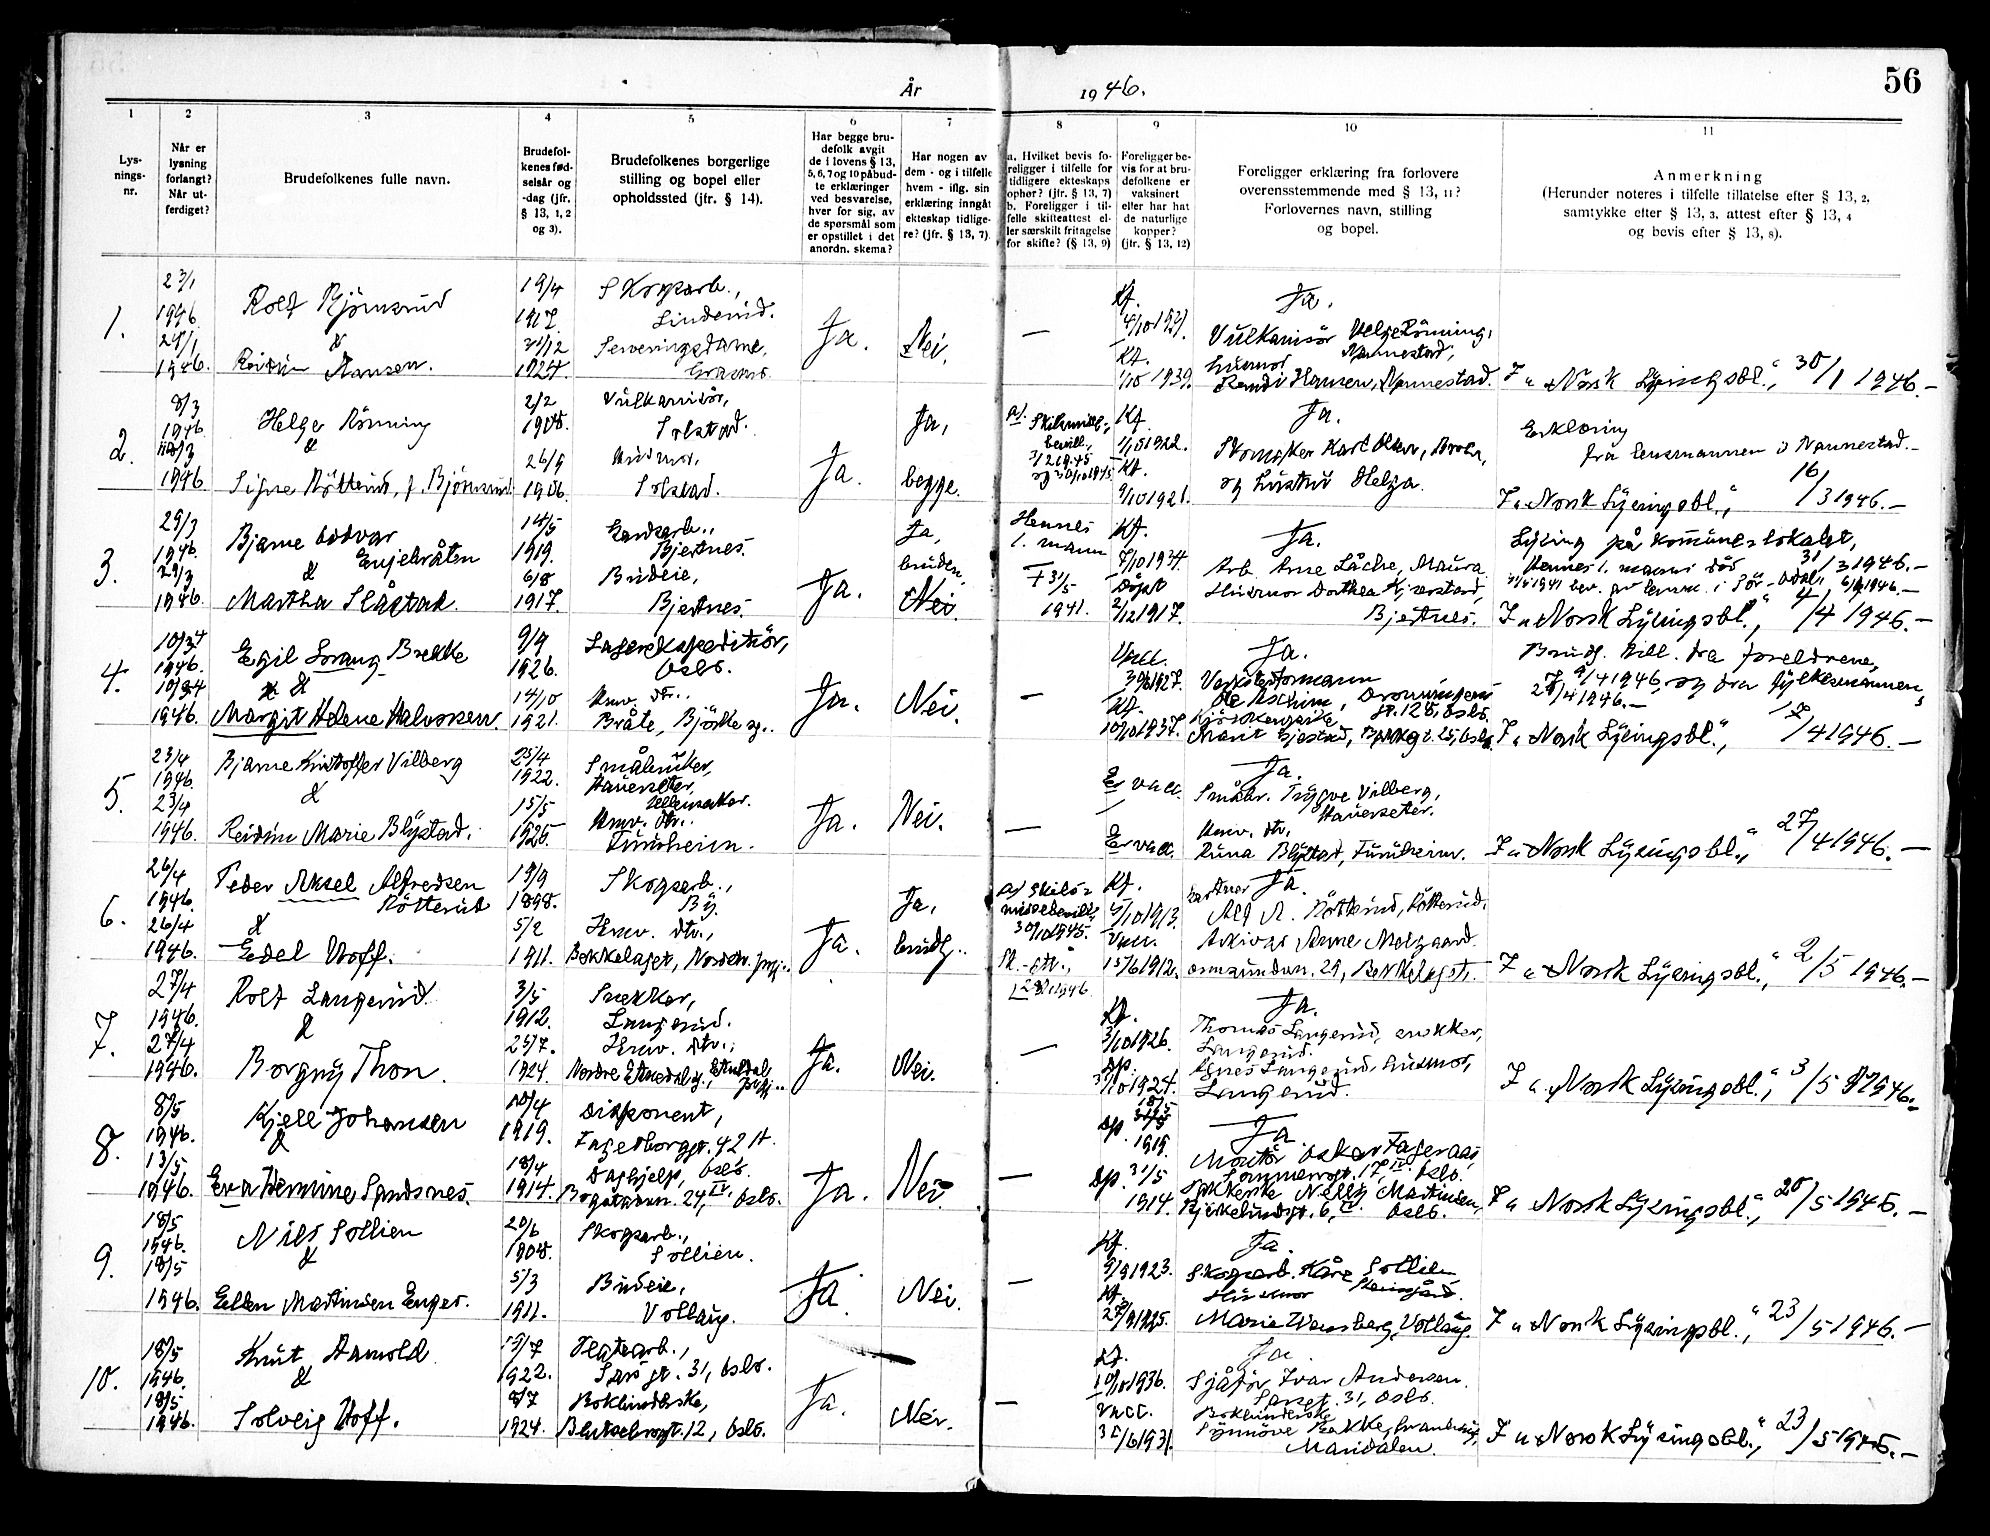 56
År 1946.
1 2 3 4 5 6 7 8 9 10 11
Lys-
nings-
nr.
Når er
lysning
forlangt?
Når ut-
ferdiget?
Brudefolkenes fulle navn.
Brudefol-
kenes fød-
selsår og
-dag (jfr.
§ 13, 1, 2
og 3).
Brudefolkenes borgerlige
stilling og bopel eller
opholdssted (jfr. § 14).
Har begge bru-
defolk avgit
de i lovens § 13,
5, 6, 7 og 10 påbud-
te erklæringer
ved besvarelse,
hver for sig, av
de spørsmål som
er opstillet i det
anordn. skema?
Har nogen av
dem - og i tilfelle
hvem - iflg. sin
erklæring inngåt
ekteskap tidlige-
re? (jfr. § 13, 7).
a. Hvilket bevis fo-
religger i tilfelle for
tidligere ekteskaps
ophør? (jfr. § 13, 7)
b. Foreligger i til-
felle skifteattest el-
ler særskilt fritagelse
for skifte? (§ 13, 9)
Foreligger be-
vis for at bru-
defolkene er
vaksinert
eller har hat
de naturlige
kopper?
(jfr. § 13, 12)
Foreligger erklæring fra forlovere
overensstemmende med § 13, 11?
Forlovernes navn, stilling
og bopel.
Anmerkning
(Herunder noteres i tilfelle tillatelse efter § 13, 2,
samtykke efter § 13, 3, attest efter § 13, 4
og bevis efter § 13, 8).
1.
23/1
1946.
1946.
Rolf Björnsrud
&
Reidun Hansen.
19/4
1917.
31/12
1924.
Skogsarb.,
Linderud.
Serveringsdame,
Ja.
Nei.
—
Kf.
Kf.
1/10 1939.
Ja.
Vulkanisör Helge Rönning,
Nannestad,
Husmor
Randi Hansen, Nannestad.
I „Norsk Lysingsbl.", 30/1 1946.—
2.
8/3
1946
1946.
Helge Rönning
&
Signe Rötterud, f. Björnsrud
2/2
1908.
26/9
1906.
Vulkanisör,
Solstad.
Husmor,
Solstad.
Ja.
Ja,
begge.
a/.
bevill.,
Kf.
1/10 1922.
Kf.
9/10 1921.
Ja.
Skomaker Karl Olsen,
og hustru Helga.
Erklæring
fra lensmannen i Nannestad.—
I „Norsk Lysingsbl.", 16/3 1946.—
3.
29/3
1946.
29/3
1946
Bjarne Bodvar
Engebråten
&
Martha Slåstad.
14/5
1919.
6/8
1917.
Gardsarb.,
Bjertnes.
Budeie,
Bjertnes.
Ja.
Ja,
bruden.
Nei
Hennes
1. mann
† 31/5
1941.
Kf.
7/10 1934.
Döpt
2/12 1917.
Ja.
Arb. Arne Låche, Maura
Husmor Dorthea Kjærstad,
Bjertnes.
Lysing på kommunelokalet,
31/3 1946.—
Hennes 1. mann död
31/5 1941 bev. av lensm. i Sör-Odal, 6/4 1946.—
I „Norsk Lysingsbl.", 4/4 1946.—
4.
1946.
1946.
Egil Lorang Brekke
&
Margit Helene Halvorsen.
9/9
1926.
14/10
1921.
Lagerekspeditör,
Oslo.
Hmv. dtr.,
Bråte, Björke sg..
Ja.
Nei.
—
Vacc.
Kf.
10/10 1937.
Ja.
Verkstedformann
Ole Aschim, Dronningens
gt. 128, Oslo.
I „Norsk Lysingsbl.", 17/4 1946.—
5.
23/4
1946.
23/4
1946.
Bjarne Kristoffer Vilberg
&
Reidun Marie Blystad.
25/4
1922.
15/5
1925.
Småbruker,
Hauerseter,
Ullensaker.
Hmv. dtr.,
Furuheim.
Ja.
Nei.
—
Er vacc.
Er vacc.
Ja.
Småbr. Trygve Vilberg,
Hauerseter.
Hmv. dtr.
Runa Blystad, Furuheim.
I „Norsk Lysingsbl.", 27/4 1946.—
6.
26/4
1946.
26/4
1946.
Peder Aksel Alfredsen
Rötterud
&
Edel Hoff.
19/9
1898.
5/2
1911.
Skogsarb.,
By.
Hmv. dtr.,
Bekkelaget, Nordstr. prgj..
Ja.
Ja,
brudg..
a/ Skils-
missebevill.
30/10 1945.
Kf.
5/10 1913.
Vacc.
15/6 1912.
Ja.
Alf A. Rötterud, Rötterud.
Anne Melgaard
29, Bekkelaget.
I „Norsk Lysingsbl.", 2/5 1946.—
7.
27/4
1946.
27/4
1946.
Rolf Langerud.
&
Borgny Thon.
3/5
1912.
25/7.
1924.
Snekker,
Langerud.
Hmv. dtr.,
Nordre Etnedal sg., Etnedal
prgj..
Ja.
Nei.
—
Kf.
3/10 1926.
Dp.
Ja.
Thomas Langerud, snekker,
Langerud.
Agnes Langerud, husmor,
Langerud.
I „Norsk Lysingsbl.", 3/5 1946.—
8.
8/5
1946.
13/5
1946.
Kjell Johansen
&
Eva Hermine Sandsnes.
1919.
18/4
1914.
Disponent,
Fagerborggt. 42 A.
Daghjelp, Oslo.
24, IV, Oslo.
Ja.
Nei.
—
Dp.
1919.
Dp. 31/5
1914.
Ja
Montör Oskar Fageraas,
Sommerrogt. 17, IV, Oslo.
Nelly Martinsen,
Bjerkelundgt. 6, Oslo.
I „Norsk Lysingsbl.", 20/5 1946.—
9.
18/5
1946.
18/5
1946.
Nils Sollien
&
Ellen Martinsen Enger.
20/6
1908.
5/3
1911.
Skogsarb.,
Sollien.
Budeie,
Vollaug.
Ja.
Nei.
—
Kf.
9/9 1923.
Kf.
Ja.
Skogsarb. Kåre Sollien
Husmor
Marie Wensberg, Vollaug
I „Norsk Lysingsbl.", 23/5 1946.—
10.
18/5
1946.
18/5
1946.
Knut Arnold
&
Solveig Hoff.
1922.
8/7
1924.
Sars gt. 31, Oslo.
Bokbinderske,
12, Oslo.
Ja.
Nei.
—
Kf.
10/10 1936.
Vacc.
Ja
Sjåför Ivar Andersen.
Sarsgt. 31, Oslo.
Bokbinderske
Maridalen.
I „Norsk Lysingsbl.", 23/5 1946.—